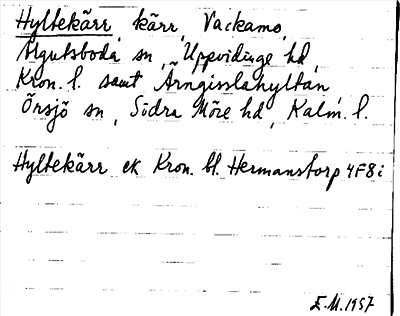 Hyltekärr kärr, Vackamo,
Älgutsboda sn, Uppvidinge hd,
Kron. l. samt Ärngisslahyltan,
Örsjö sn, Södra Möre hd, Kalm. l.
Hyltekärr ek Kron. bl. Hermanstorp 4F8i
E.M. 1957